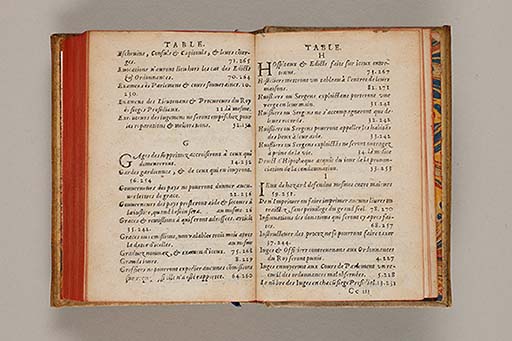 TABLE.
Eschevins, Consuls & Capitouls, & leurs charges.
73.265
Evocations n'auront lieu hors les cas des Edicts
& Ordonnances. 70.264
Examens de Parlement & cours souveraines. 10.
230.
Examens des Lieutenans & Procureurs du Roy
és sieges Presidiaux. là mesme.
Executeurs des jugemens ne seront empeschez pour
les reparations & 52.250
G
GAges des supprimez accroistront à ceux qui
demeureront. 14.232
Gardes gardiennes, & de ceux qui en jouyront.
56.254
Gouverneurs des pays ne pourront donner aucunes
lettres de grace. 22.236
Gouverneurs des pays presteront aide & secours à
la justice, quand besoin sera. au mesme 26
Graces & remissions à qui seront adressees. article
35.242.
Graces ou remissions, non valables trois mois apres
la date d'icelles. au mesme
Graduez nommez, & examen d'iceux. 75.268
Grands iours. 8.229
Greffiers ne pourront expedier aucunes
s'il n'est rapporté. 64.260
TABLE.
H
HOspitaux & Edicts faits sur iceux entretenus.
73.267
Huissiers mettront un tableau à l'entree de leurs
maisons. 82.271
Huissiers ou Sergens exploictans porteront une
verge en leur main. 35.242
Huissiers ou Sergens ne s'accompagneront que de
leurs records. 32.242
Huissiers ou Sergens pourront appeller les habitās
des lieux à leur aide. 33.242
Huissiers ou Sergens exploictās ne seront outragez
à peine de la vie. 34. là mesme
Droict d'Hipotheque acquis du jour de la prononciation
de la condemnation. 53.253
I
IEux de hazard defendus mesmes entre maieurs
59.258.
De n'Imprimer ou faire imprimer aucuns livres ou
traictez, sans privilege du grand seel. 78.270
Informations des dans
68.257
Instructeurs des procez ne se pourront faire taxer
37.244.
Iuges & Officiers contrevenans aux Ordonnances
du Roy seront punis. 4.227
Iuges envoyeront aux Cours de Parlement un recueil
des ordonnances mal observees. 5.228
Le nōbre des Iuges en chacū siege Presidial. 13.231
Cc iii